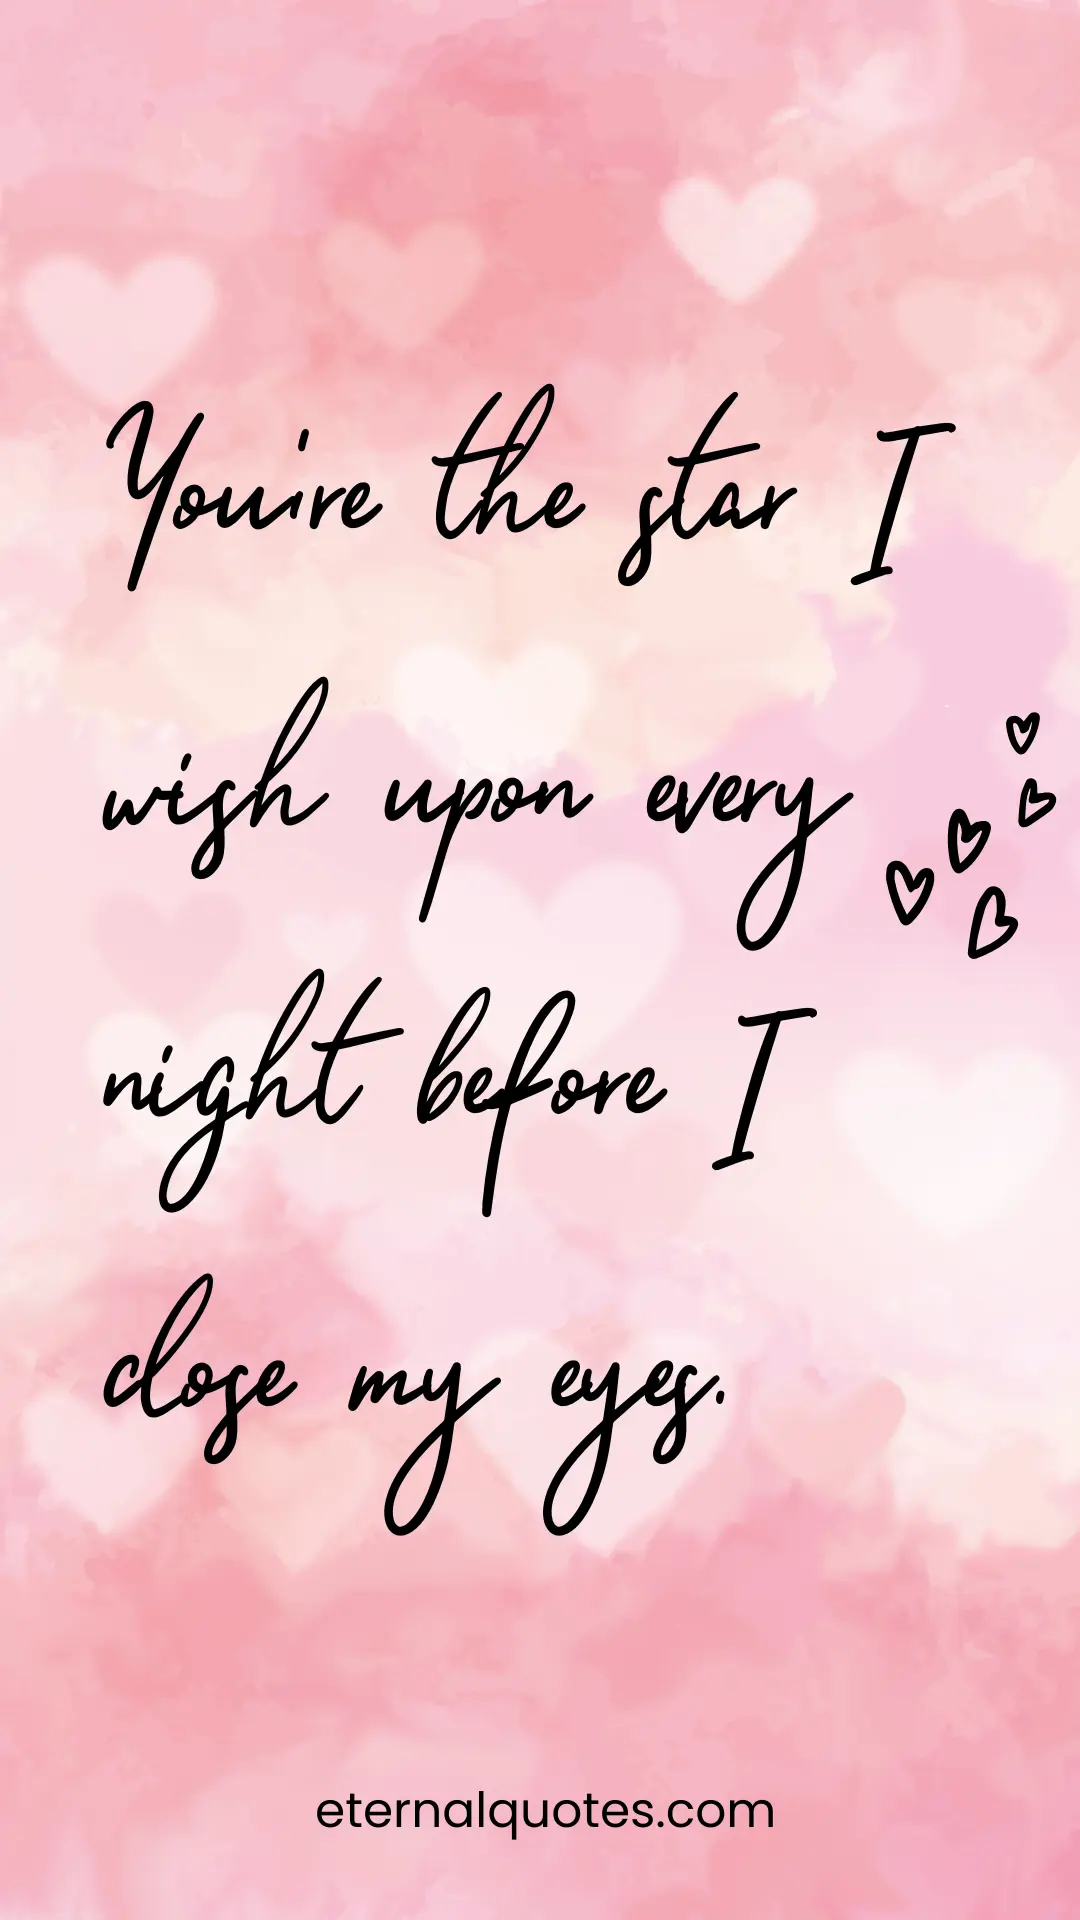 You're the star I
wish upon every
night before I
close my eyes.
eternalquotes.com